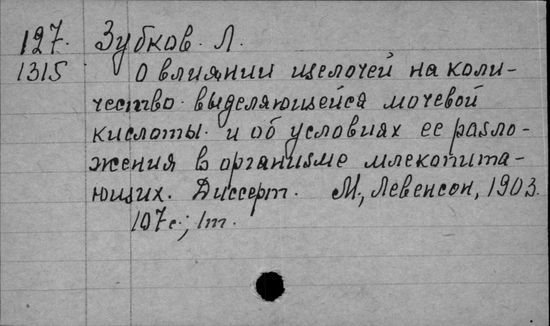 127. Зубков. Л.
1315 О влиянии щелочей на коли-
чество выделяющейся мочевой
кислоты и об условиях ее разло-
жения в организме млекопита-
ющих. Диссерт. М., Левенсон, 1903.
107 с.; 1т.